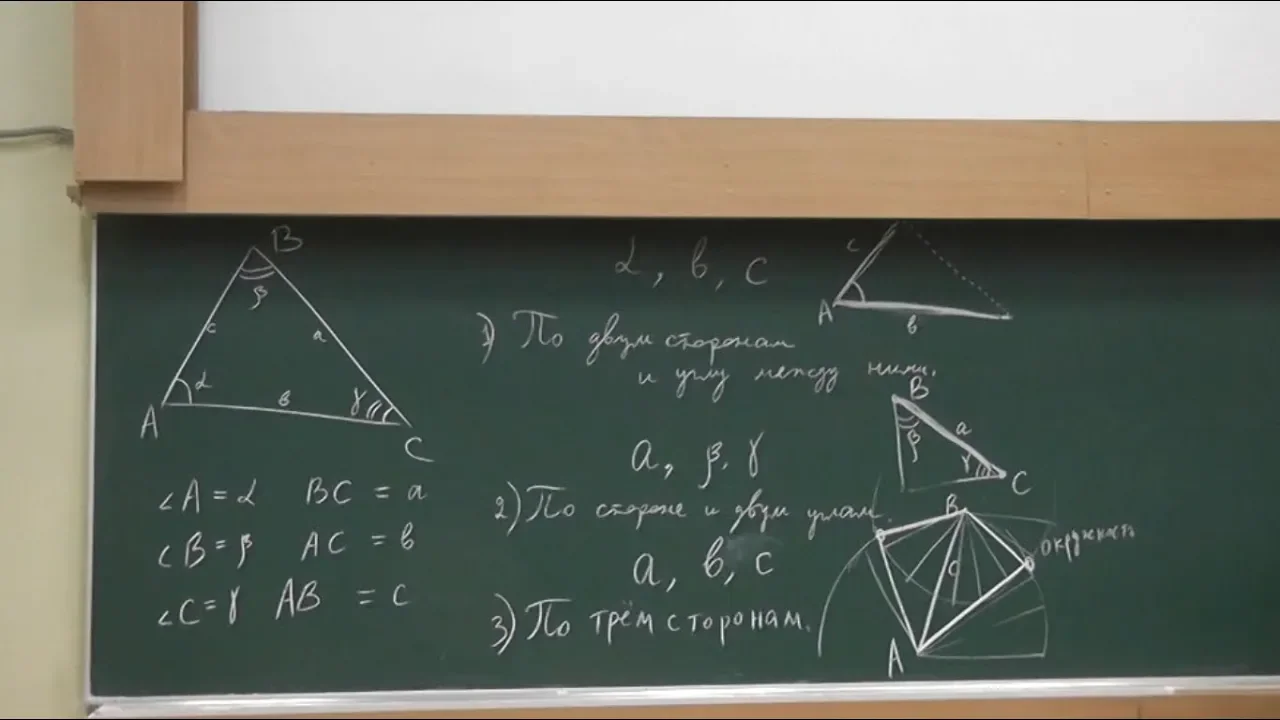 B
β
c
a
α
в
γ
A
C
∠A = α BC = a
∠B = β AC = в
∠C = γ AB = c
α, в, c
1) По двум сторонам
и углу между ними.
c
A
в
a, β, γ
2) По стороне и двум углам.
B
β
a
γ
C
a, в, c
3) По трём сторонам.
B
окружность
c
A